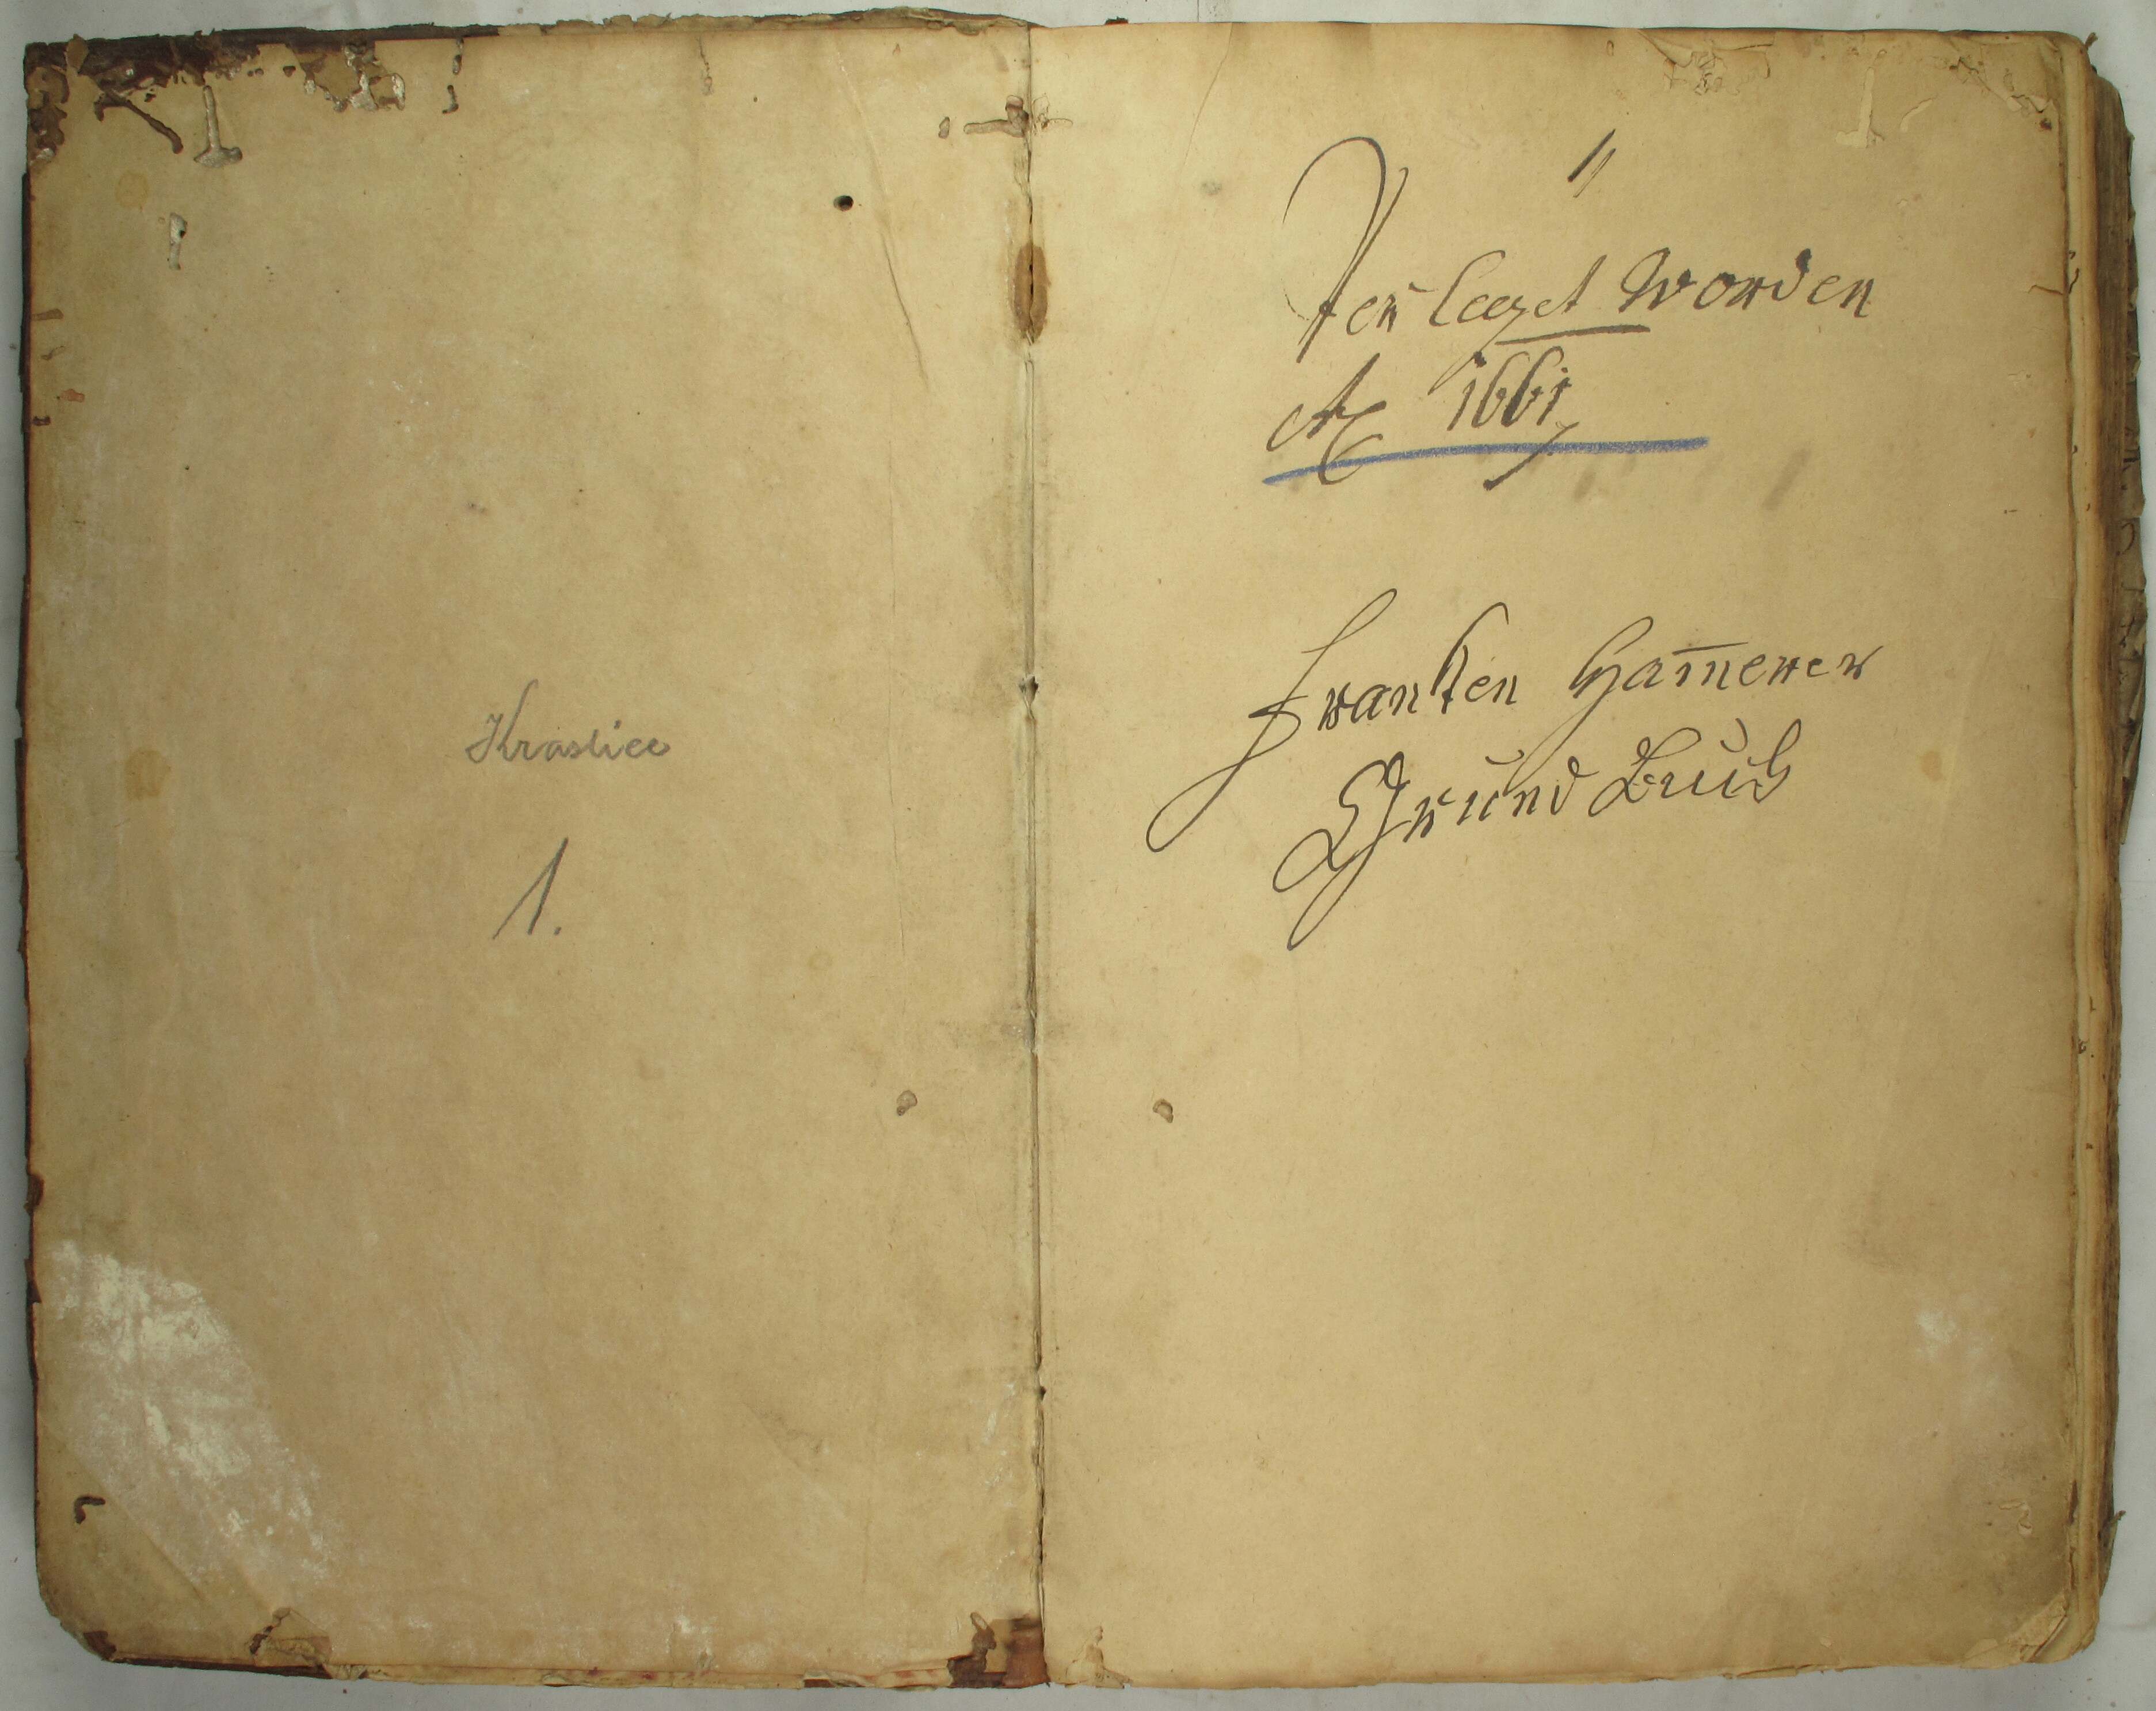 Kraslice
1.
Verleget Worden
Ao 1661
Franken Ham̄erer
Grund Buch